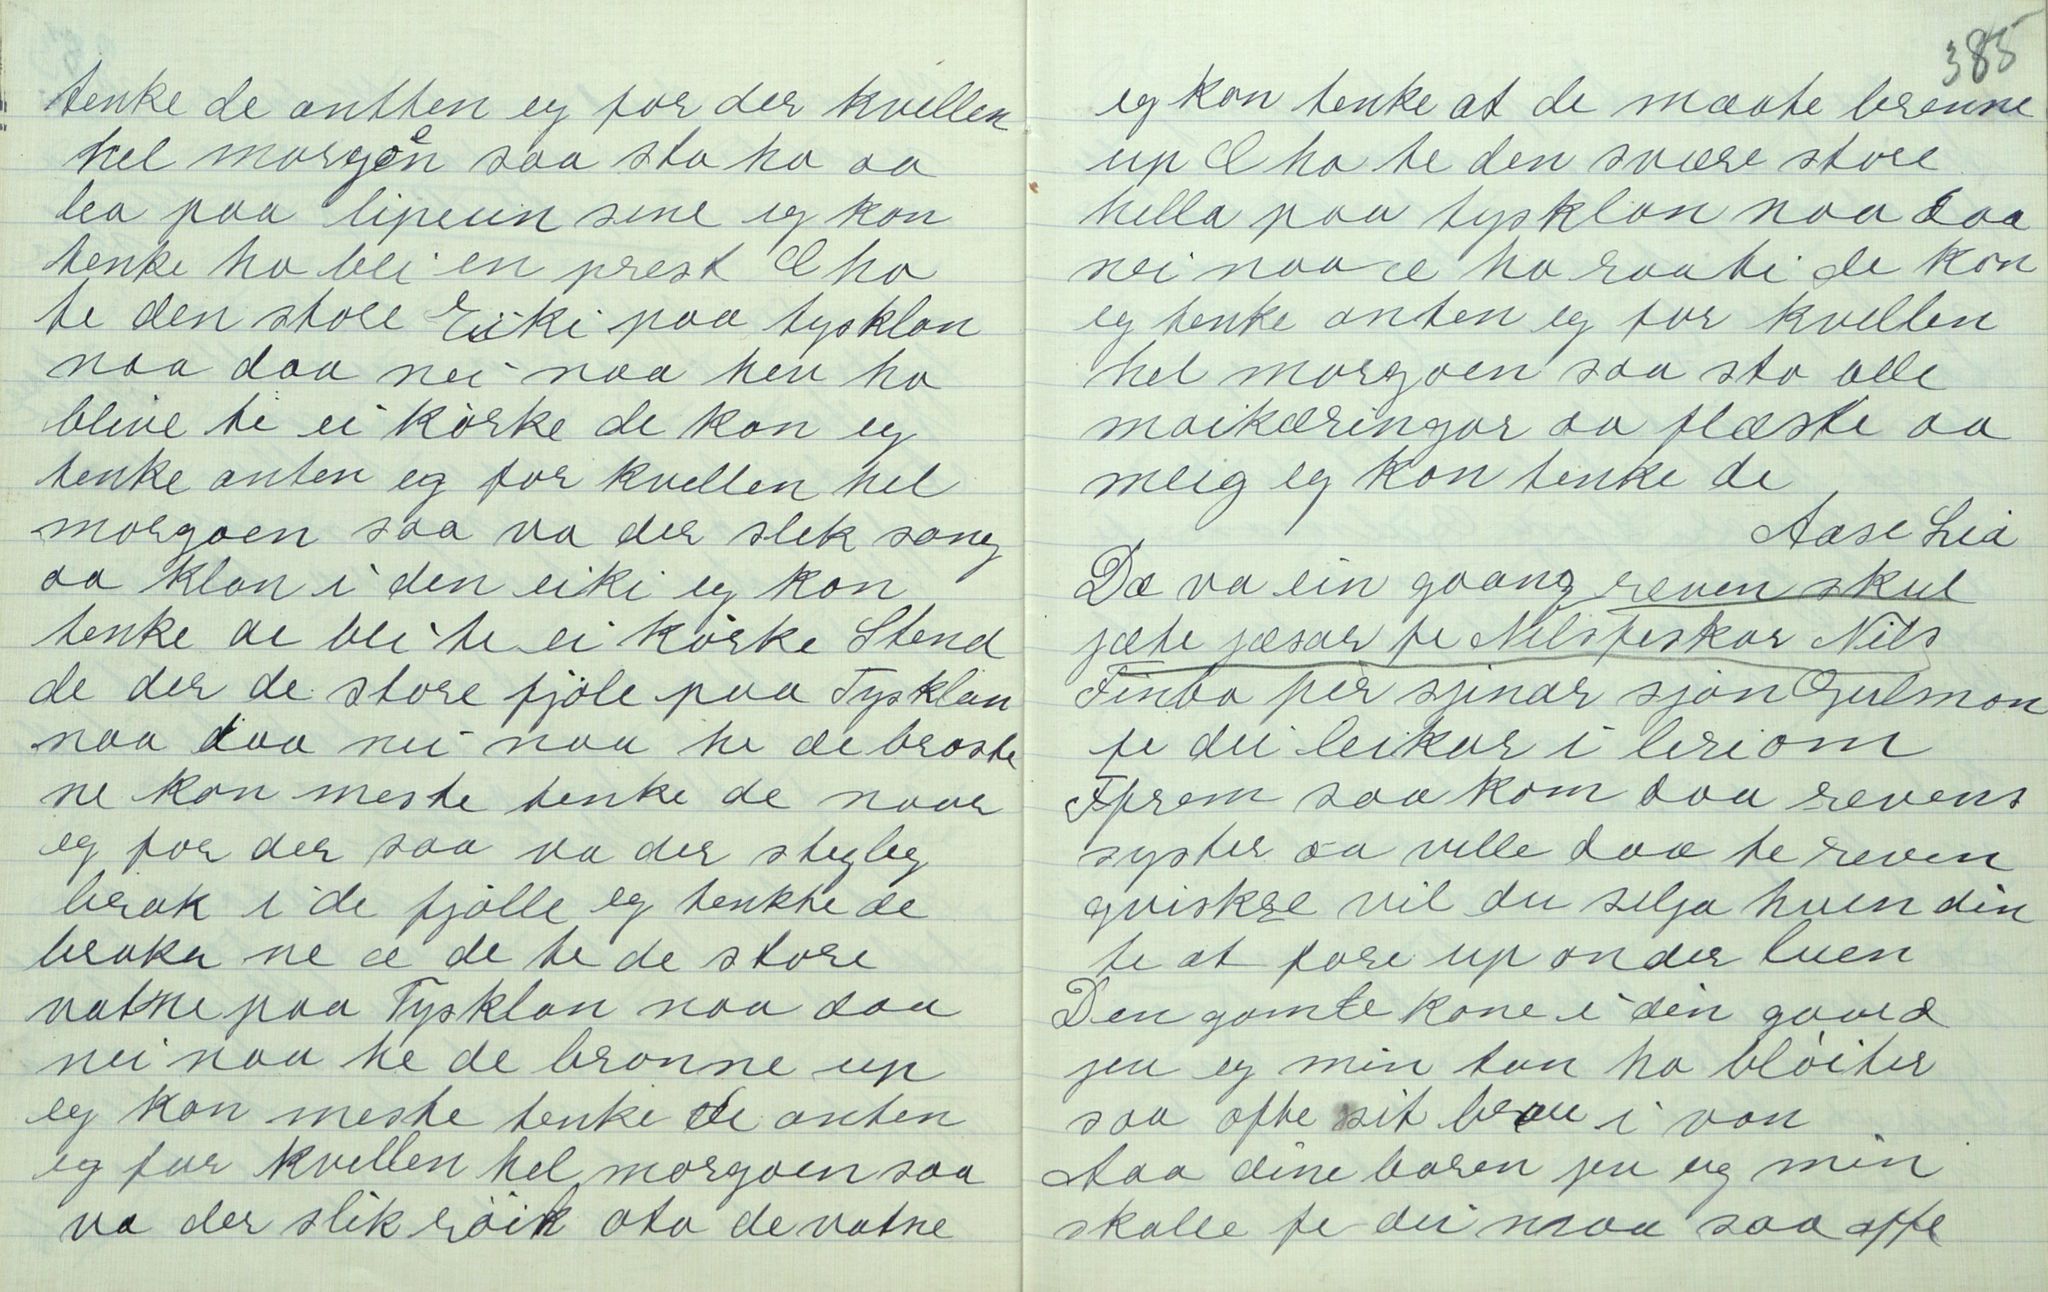 tenke de antten eg for der kvellen
hel morgøn saa sto ho aa
lea paa lipeun sene eg kon
tenke ho blei en prest E ho
te den store Eiki paa tysklan
naa daa nei naa hen ho
blive te ei kørke de kon eg
tenke anten eg for kvellen hel
morgoen saa va der slek song
aa klan i den eiki eg kon
tenke de blei te ei kørke Stend
de der de store fjøle paa Tysklan
naa daa nei naa he de broste
ne kon meste tenke de naar
eg for der saa va der stygleg
brak i de fjølle eg tenkte de
braka ne æ de te de store
vatne paa Tysklan naa daa
nei naa he de bronne up
eg kon meste tenke de anten
eg for kvellen hel morgoen saa
va der slik røik ota de vatne
385
eg kon tenke at de maate brenne
up E ho te den svære store
hella paa tysklan naa daa
nei naa æ ho raati de kon
eg tenke anten eg for kvellen
hel morgoen saa sto alle
maikæringar aa flæste aa
meig eg kon tenke de
Aase Lia
De va ein goang reven skul
jæte jæsar fe Nilsfiskar Nils
Finbo per sjinar sjøn Gulmon
fe dei leikar i leriom
Fprem saa kom daa revens
syster aa ville daa te reven
qviskre vil du selja huen din
te at fare up onder luen
Den gomle kone i din gaard
jeu eg min tan ho bløiter
saa ofte sit brøu i van
Aaa dine baren jeu eg min
skalle fe dei maa saa offe